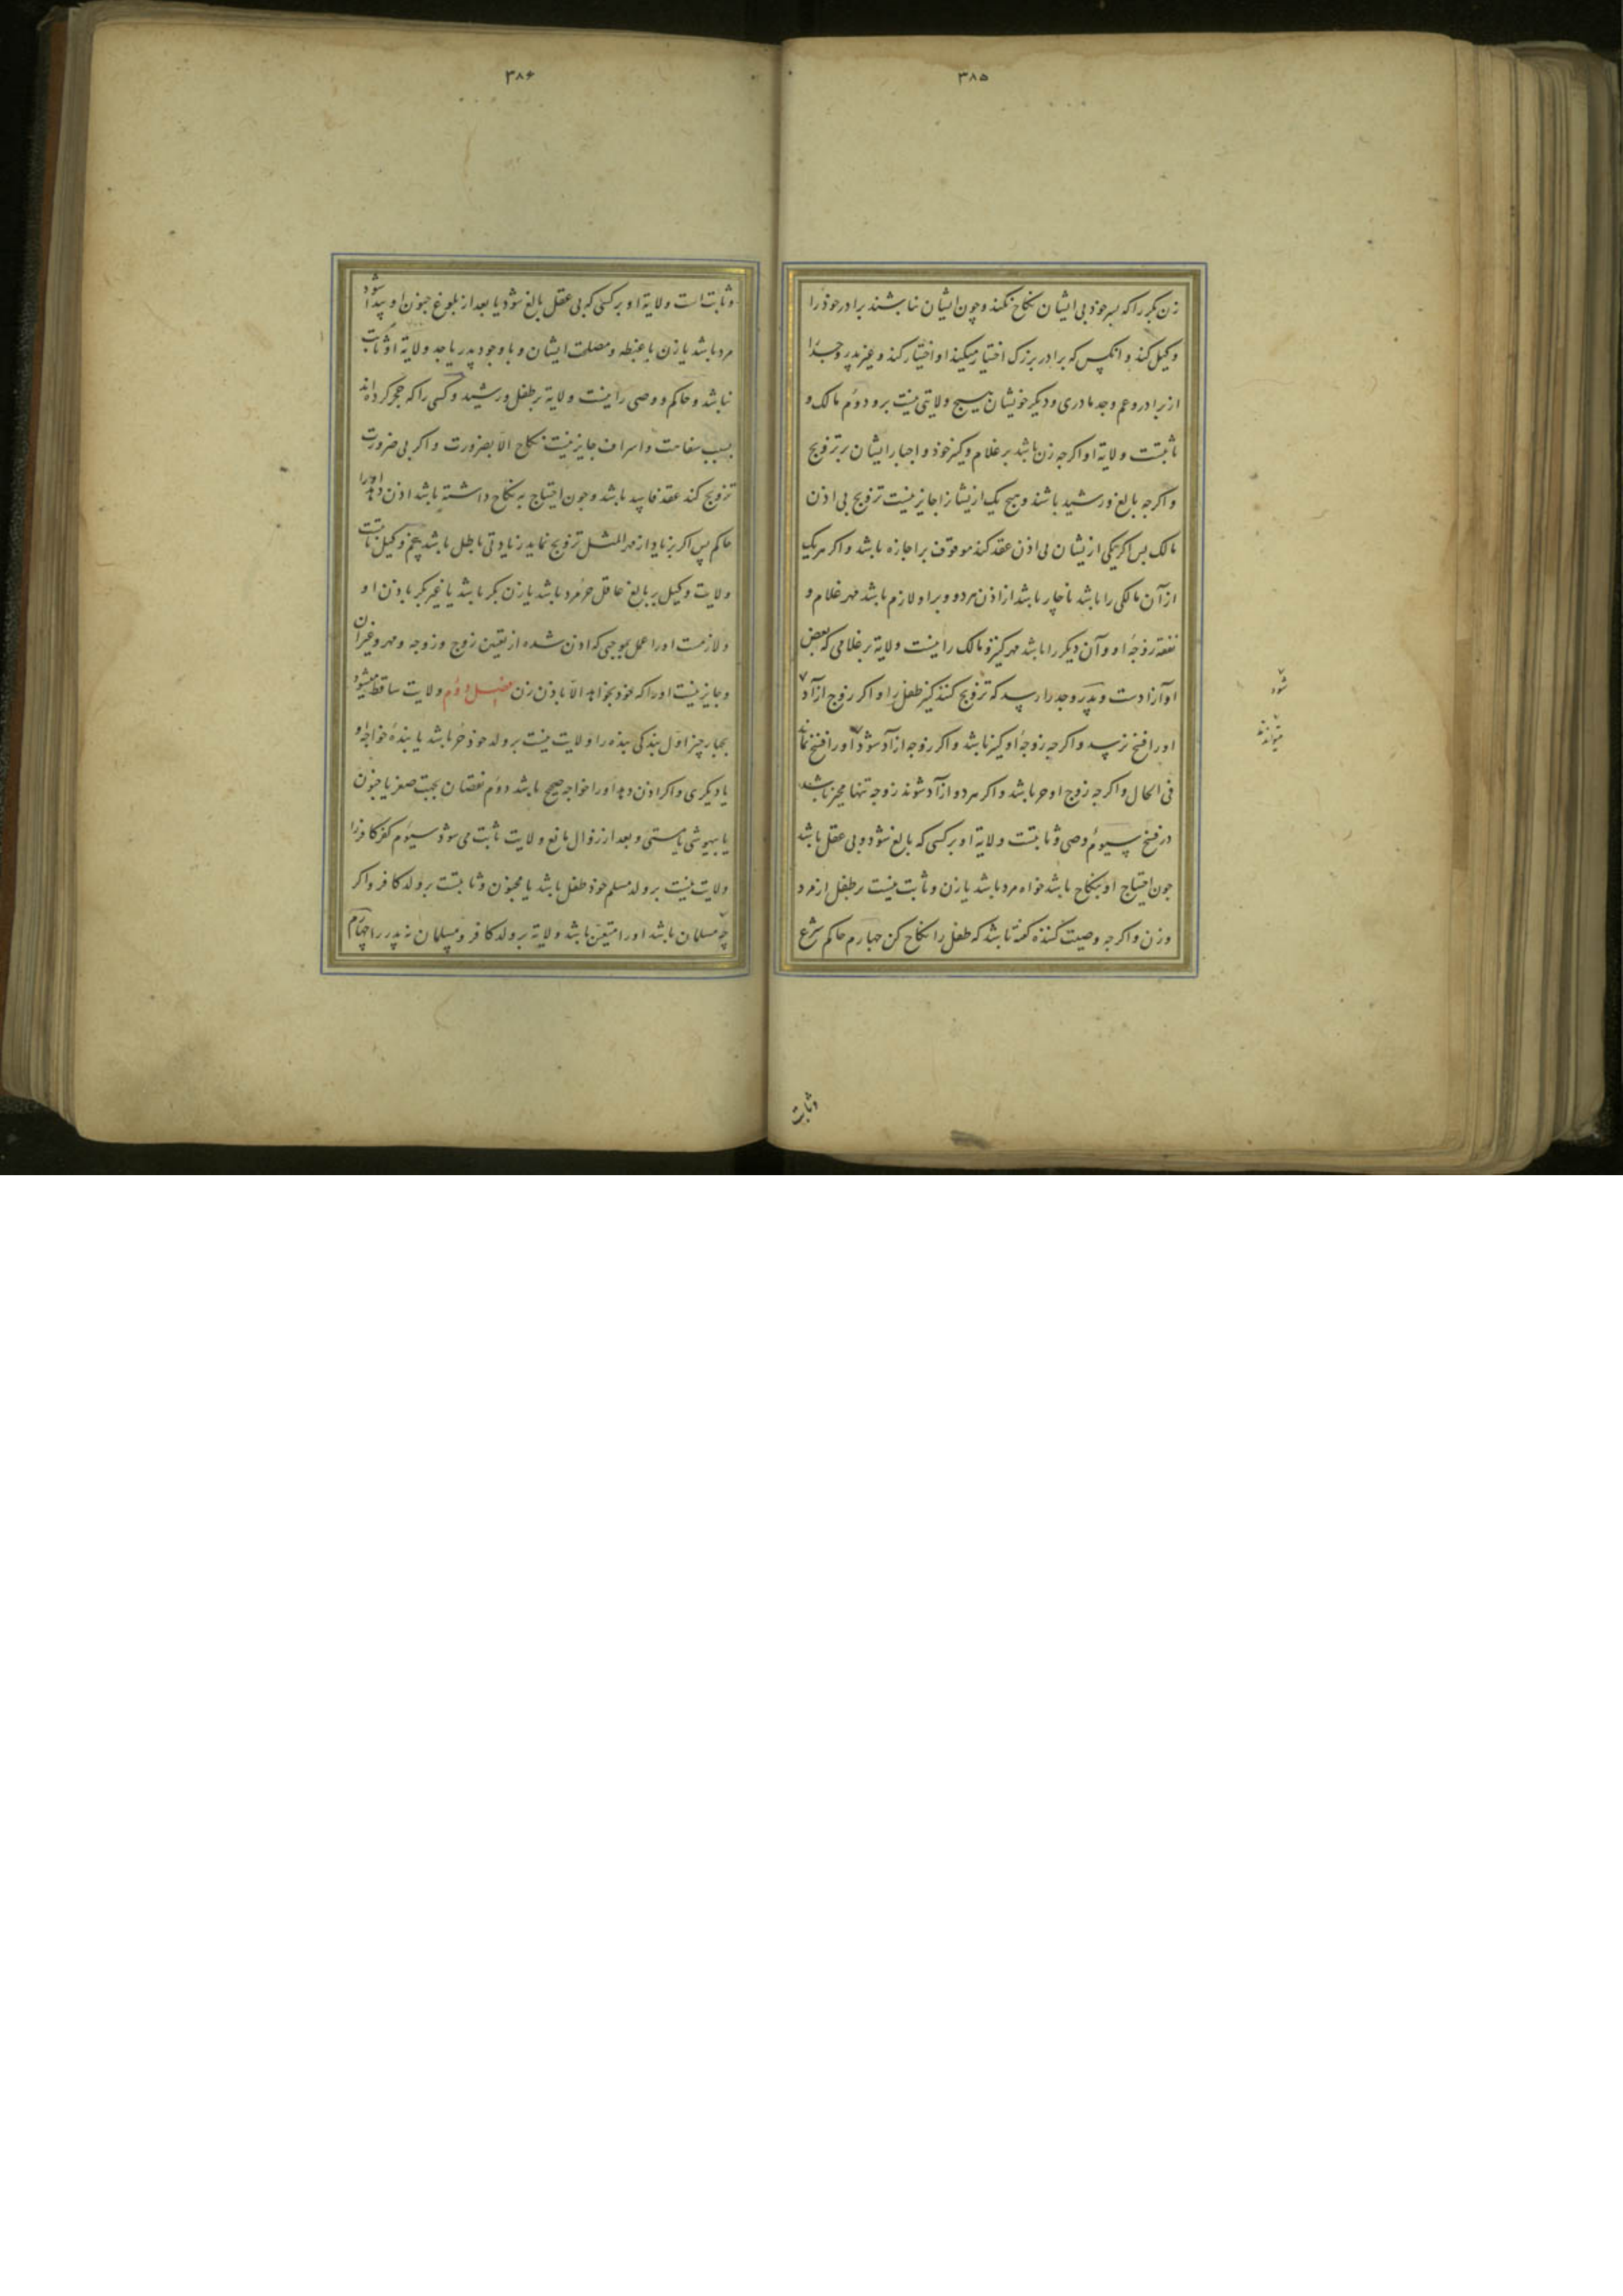 ۳۸۵
زن بکر را که بسر خوذ بی ایشان نکاح نکند و چون ایشان نباشند برادر خوذ را
وکیل کند و انکس که برادر بزرک اختیار میکند او اختیار کند و غیر پدر و جد را
از برادر و عم و جد مادری و دیکر خویشان هیچ ولایتی نیست برو دوم مالک و
ثابتست ولایة او اکرجه زن باشد بر غلام و کنیز خوذ و اجبار ایشان بر تزویج
و اکرجه بالغ و رشید باشند و هیچ یک از یشانرا جایز نیست تزویج بی اذن
مالک بس اکر یکی از یشان بی اذن عقد کند موقوف بر اجازه باشد و اکر هر یک
از آن مالکی را باشد ناچار باشد از اذن هر دو و برا و لازم باشد مهر غلام و
نفقه زوجه او و آن دیکر را باشد مهر کنیز و مالک را نیست ولایة بر غلامی که بعض
او آزادست و پدر و جد را رسد که تزویج کنند کنیز طفل را و اکر زوج ازآد
او را فسخ نرسد و اکرجه زوجه او کنیز باشد و اکر زوجه ازآد شوذ او را فسخ
فی الحال و اکرجه زوج او حر باشد و اکر هر دو ازآد شوند زوجه تنها مخیر باشد
در فسخ سیوم وصی و ثابتست ولایة او بر کسی که بالغ شوذ و بی عقل باشد
جون احتیاج او بنکاح باشد خواه مرد باشد یا زن و ثابت نیست بر طفل از مرد
و زن و اکرجه وصیت کننده کفته باشد که طفل را نکاح کن جهارم حاکم شرع
شود
میتواند
وثابت
۳۸۶
و ثابت است ولایة او بر کسی که بی عقل بالغ شوذ یا بعد از بلوغ جنون او پیدا شود
مرد باشد یا زن با غبطه و مصلحت ایشان و با وجود پدر یا جد ولایة او ثابت
نباشد و حاکم و وصی را نیست ولایة بر طفل و رشید و کسی را که حجر کرده اند
بسبب سفاهت و اسراف جایز نیست نکاح الا بضرورت و اکر بی ضرورت
تزویج کند عقد فاسد باشد و جون احتیاج به نکاح داشته باشد اذن دهد او را
حاکم پس اکر بزیاد از مهر المثل تزویج نماید زیادتی باطل باشد پنجم وکیل ثابتست
ولایت وکیل بر بالغ عاقل حر مرد باشد یا زن بکر باشد یا غیر بکر باذن او
و لازمست او را عمل بموجبی که اذن شده از تعیین زوج و زوجه و مهر و غیر آن
و جایز نیست او را که خود بخواهد الا باذن زن فصل دوم ولایت ساقط میشود
بجهار چیز اول بندکی بنده را ولایت نیست بر ولد خوذ حر باشد یا بنده خواجه او
یا دیکری و اکر اذن دهد او را خواجه صحیح باشد دوم نقصان بجهت صغر یا جنون
یا بیهوشی یا مستی و بعد از زوال مانع ولایت ثابت می شوذ سیوم کفر کافر را
ولایت نیست بر ولد مسلم خوذ طفل باشد یا مجنون و ثابتست بر ولد کافر و اکر
جد مسلمان باشد او را متعین باشد ولایة بر ولد کافر و مسلمان نه پدر را چهارم